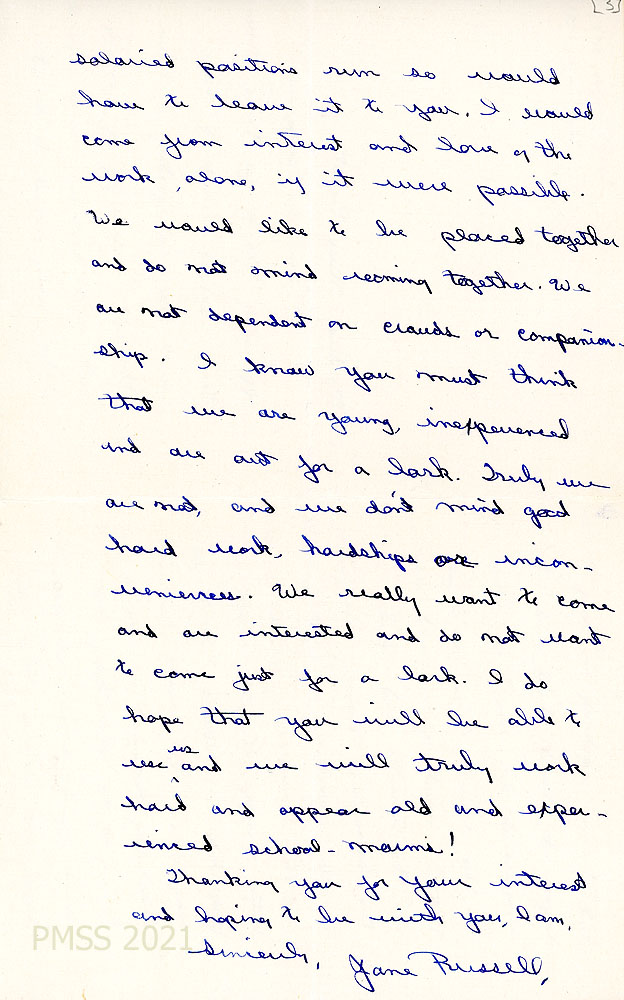 [3]
salaried positions run so would
have to leave it to you. I would
come from interest and love of the
work, alone, if it were possible.
We would like to be placed together
and do not mind rooming together. We
are not dependent on crowds or companion-
ship. I know you must think
that we are young, inexperienced
and are out for a lark. Truly we
are not, and we don't mind good
hard work, hardships or incon-
veniences. We really want to come
and are interested and do not want
to come just for a lark. I do
hope that you will be able to
use us and we will truly work
hard and appear old and exper-
ienced school-marms!
Thanking you for your interest
and hoping to be with you, I am,
Sincerely,
Jane Russell,
PMSS 2021